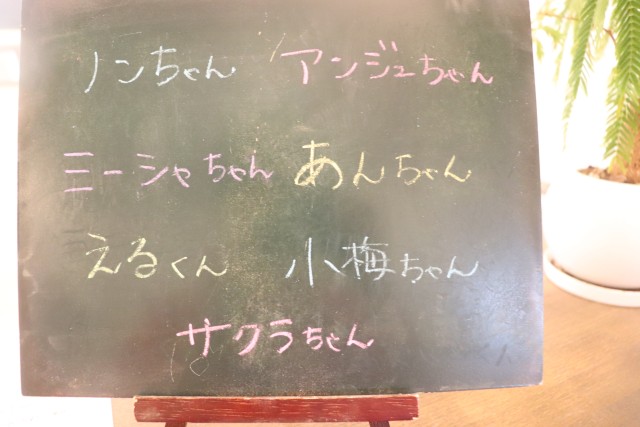 ノンちゃん アンジュちゃん
ミーシャちゃん あんちゃん
えるくん 小梅ちゃん
サクラちゃん